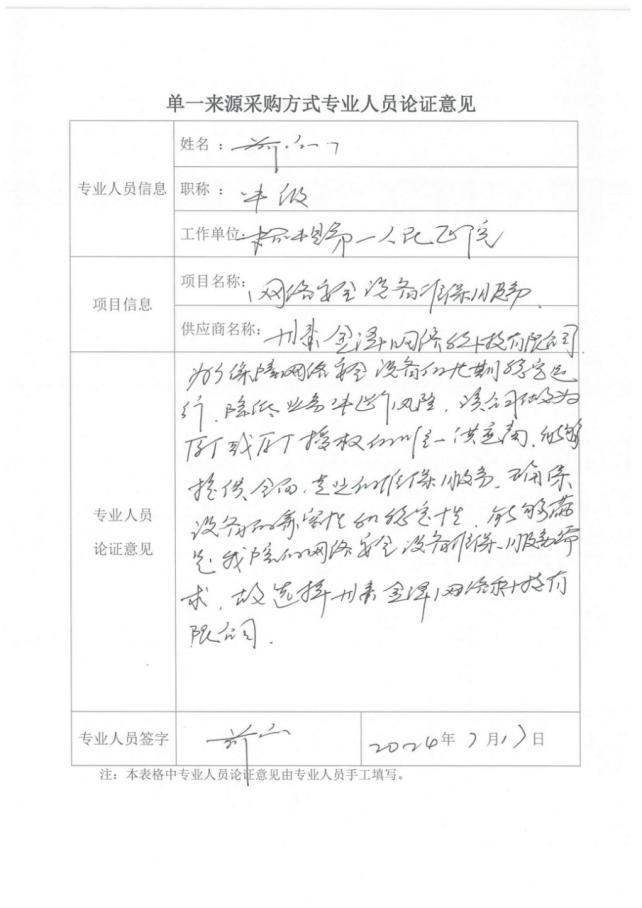 单一来源采购方式专业人员论证意见
专业人员信息
姓名：
职称：中级
工作单位：第一人民医院
项目信息
项目名称：网络安全设备维保服务
供应商名称：金泽网络科技有限公司
专业人员
论证意见
为了保障网络安全设备的长期稳定运
行，降低业务中断风险，该公司作为
原厂或原厂授权的唯一供应商，能够
提供全面，专业的维保服务，确保
设备的可靠性和稳定性，能够满
足我院的网络安全设备维保服务需
求，故选择金泽网络科技有
限公司。
专业人员签字
2024年7月17日
注：本表格中专业人员论证意见由专业人员手工填写。